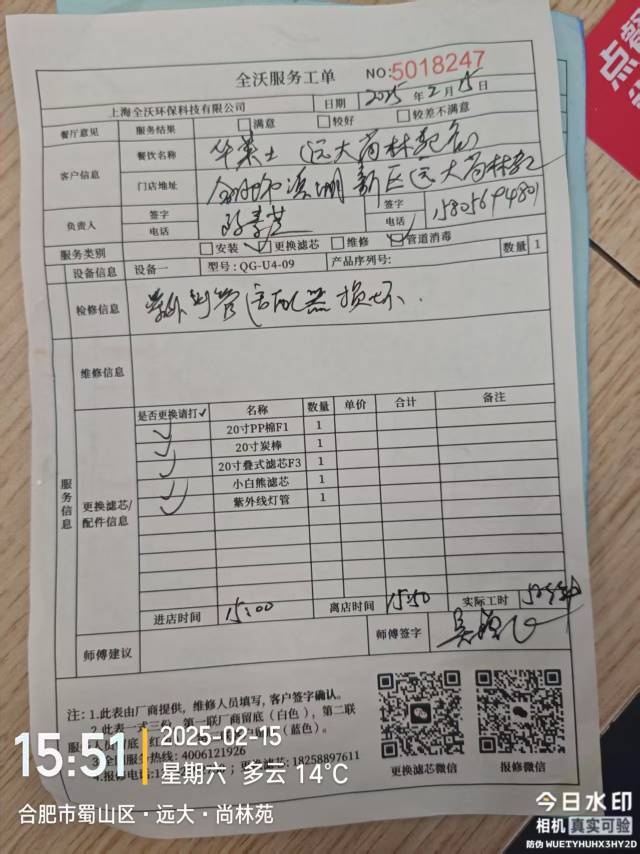 全沃服务工单 NO:5018247
上海全沃环保科技有限公司 日期 2025年2月15日
餐厅意见 服务结果 满意 较好 较差不满意
客户信息 餐饮名称 华莱士（远大尚林苑店）
门店地址 新区远大尚林苑
负责人 签字 签字
电话 电话 15805694801
服务类别 安装 更换滤芯 维修 管道消毒
设备信息 设备一 型号：QG-U4-09 产品序列号： 数量 1
检修信息 紫外灯管适配器损坏.
维修信息
服务信息
更换滤芯/配件信息
是否更换请打✓ 名称 数量 单价 合计 备注
✓ 20寸PP棉F1 1
✓ 20寸炭棒 1
✓ 20寸叠式滤芯F3 1
✓ 小白熊滤芯 1
✓ 紫外线灯管 1
进店时间 15:00 离店时间 15:50 实际工时 50分钟
师傅建议 师傅签字
注：1.此表由厂商提供，维修人员填写，客户签字确认。
2.此表一式三份，第一联厂商留底（白色），第二联
服务人员留底（红 （蓝色）。
3. 服务热线：4006121926
4.报修电话:1 ；更换滤芯:18258897611
更换滤芯微信 报修微信
15:51 2025-02-15
星期六 多云 14℃
合肥市蜀山区·远大·尚林苑
今日水印
相机 真实可验
防伪 WUETYHUHX3HY2D